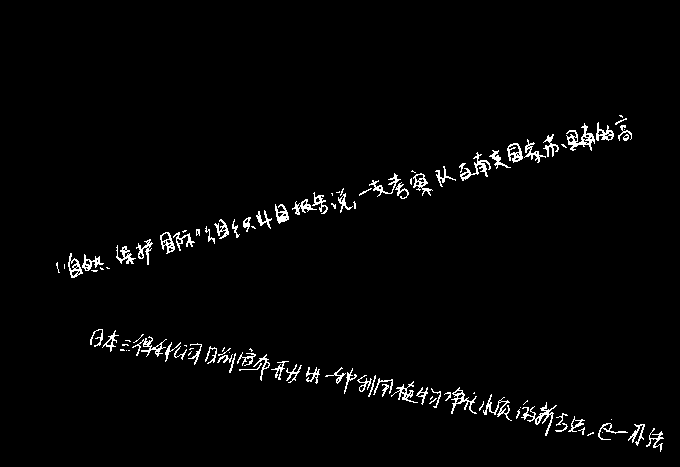 “自然保护国际”组织4日报告说,一支考察队在南美国家苏里南的高
日本三得利公司日前宣布开发出一种利用植物净化水质的新方法,这一办法